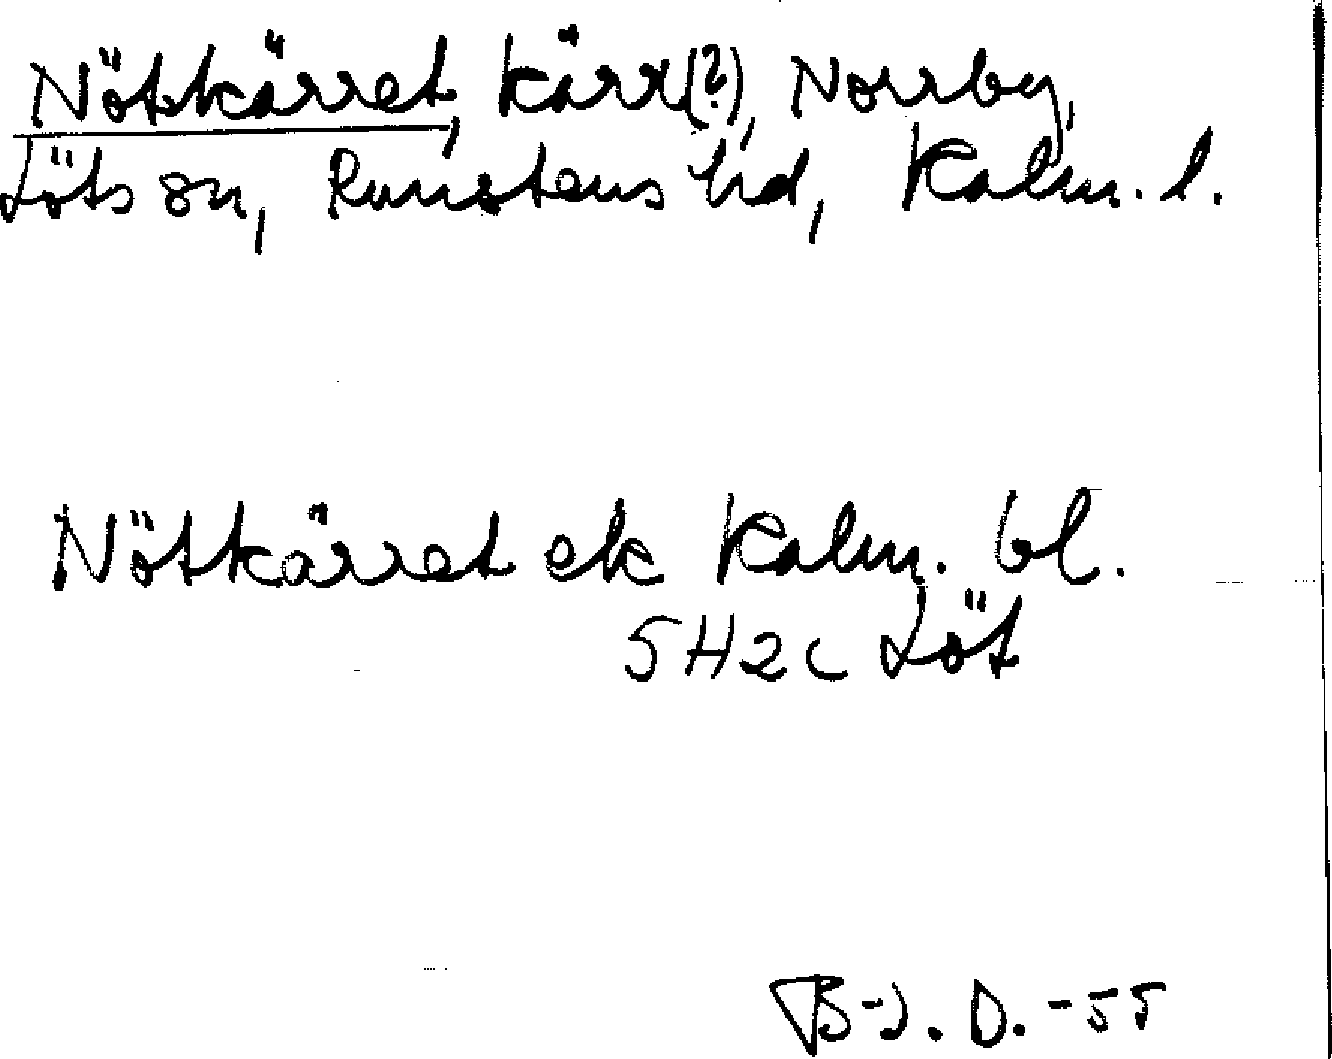 Nötkärret, kärr(?), Norrby,
Löts sn, Runstens hd, Kalm. l.
Nötkärret ek Kalm. bl.
5H2c Löt
B-J. D. -55